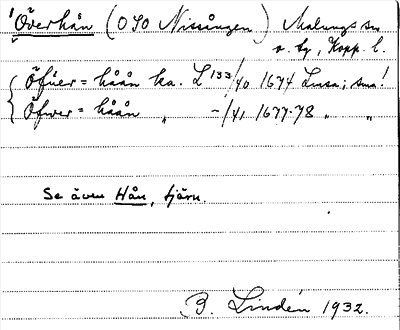 Överhån (OSO Nissången) Malungs sn
o. tg, Kopp. l.
Öfúer = håån ka. L 133/40 1674 Lima; sna!
Öfwer = håån " -/41 1677-78 " "
Se även Hån, tjärn.
B. Lindén 1932.